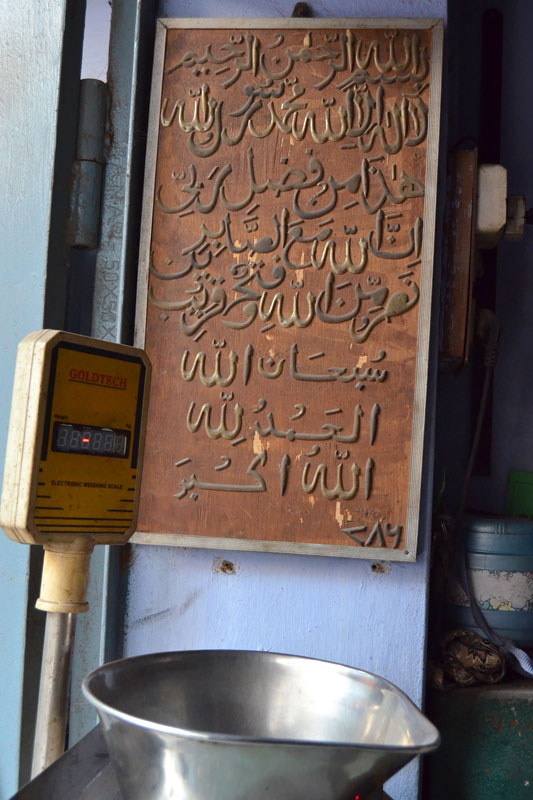 بسم الله الرحمن الرحيم
لا اله الا الله محمد رسول الله
هٰذَا مِن فضل رَبِّی
اِنَّ الله مَعَ الصَّابِرِين
نصر مِّنَ الله وفتحٌ قريب
سُبحَان الله
الحَمدُ لِلّٰه
الله اكبَر
٧٨٦
GOLDTECH
Weight
kg
ELECTRONIC WEIGHING SCALE